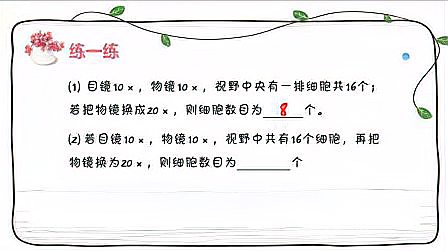 练一练
(1) 目镜10×，物镜10×，视野中央有一排细胞共16个；
若把物镜换成20×，则细胞数目为 8 个。
(2) 若目镜10×，物镜10×，视野中共有16个细胞，再把
物镜换为20×，则细胞数目为______个